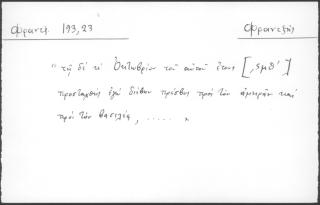 Φραντζ. 193,23 Φραντζῆς
"τῇ δὲ ιε' Ὀκτωβρίου τοῦ αὐτοῦ ἔτους [,ςμθ']
προσταχθεὶς ἐγὼ διέβην πρέσβυς πρὸς τὸν ἀμηρᾶν καὶ
πρὸς τὸν βασιλέα, ..... "